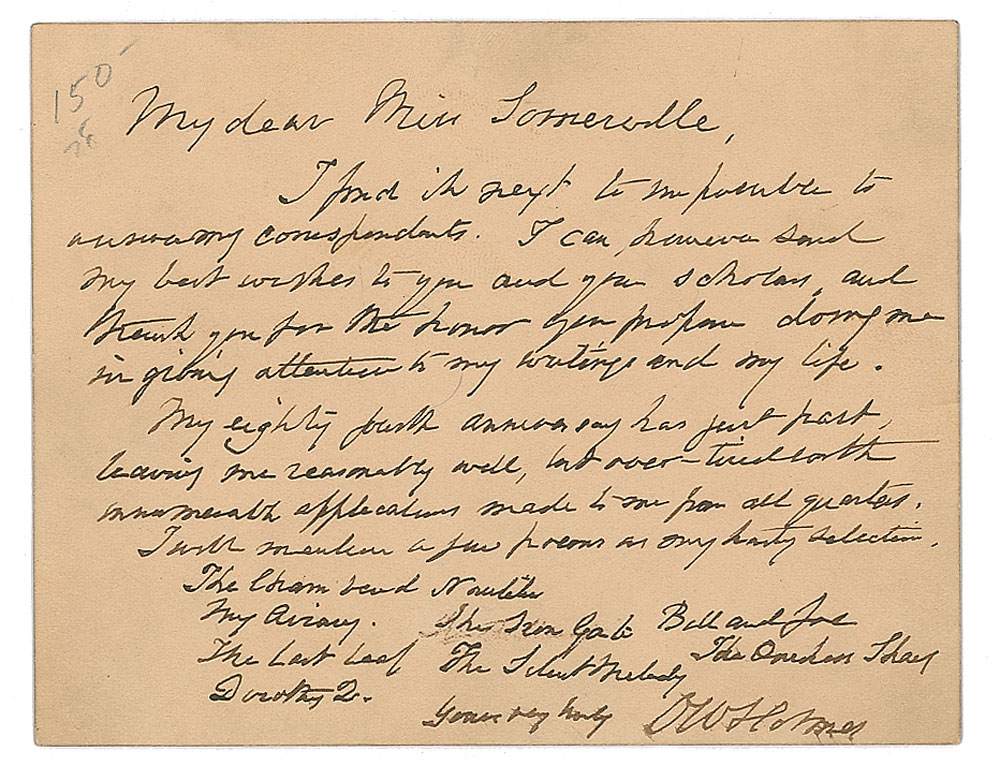 150
My dear Miss Somerville,
I find it next to impossible to
answer my correspondents. I can however send
my best wishes to you and your scholars, and
thank you for the honor you propose doing me
in giving attention to my writings and my life.
My eighty fourth anniversary has just past,
leaving me reasonably well, but over-tired with
innumerable applications made to me from all quarters.
I will mention a few poems as my hasty selection.
The Chambered Nautilus
My Aviary. The Iron Gate Bill and Joe
The Last Leaf The Silent Melody The Onehoss Shay
Dorothy Q.
Yours very truly O W Holmes